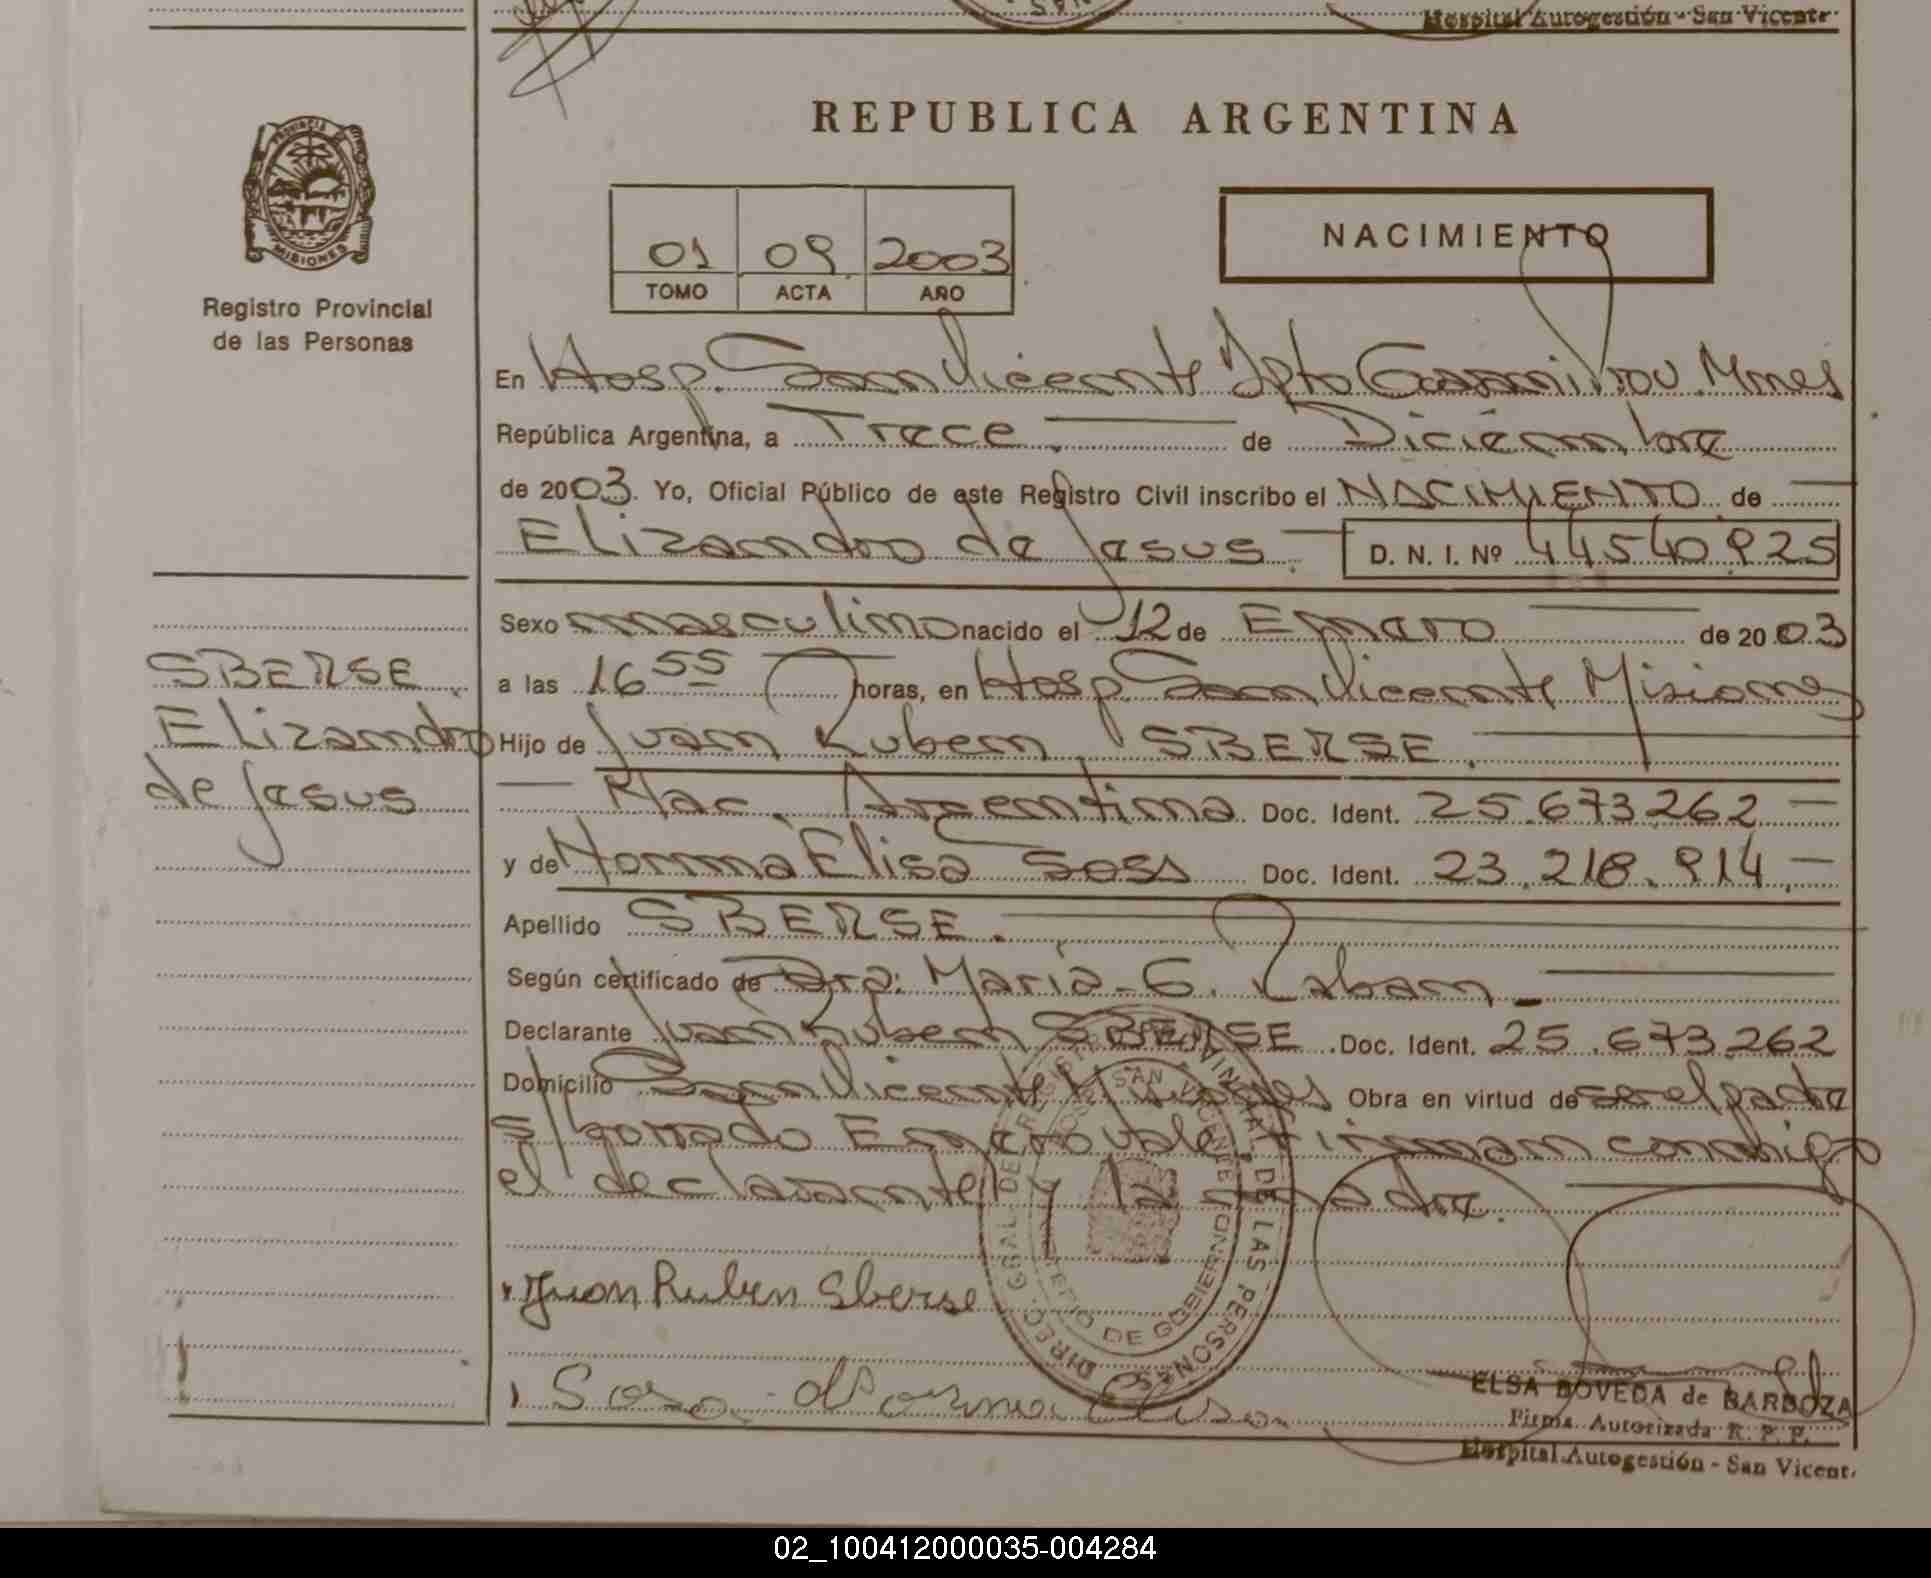 Hospital Autogestión - San Vicente
PROVINCIA
MISIONES
Registro Provincial
de las Personas
REPUBLICA ARGENTINA
01 09 2003
TOMO ACTA AÑO
NACIMIENTO
En Hosp. San Vicente Dpto Guarni Prov. Mnes
República Argentina, a Trece. de Diciembre
de 2003. Yo, Oficial Público de este Registro Civil inscribo el NACIMIENTO de
Elizandro de Jesus. D. N. I. Nº 44540.925
Sexo masculino nacido el 12 de Enero de 2003
a las 16 55 horas, en Hosp San Vicente Misiones
Hijo de Juan Ruben SBERSE.
Nac. Argentina. Doc. Ident. 25.673.262
y de Norma Elisa Sosa Doc. Ident. 23.218.914.
Apellido SBERSE.
Según certificado de Dra: Maria - G.
Declarante Juan Ruben SBERSE. Doc. Ident. 25.673.262
Domicilio San Vicente Misiones Obra en virtud de ser el padre
S/borrado Enero vale. Firman conmigo
el declarante y la madre.
SBERSE
Elizandro
de Jesus
DIREC. GRAL. DEL REGISTRO PROVINCIAL DE LAS PERSONAS
SAN VICENTE
DE GOBIERNO
Juan Ruben Sberse
Sosa Norma Elisa
ELSA BOVEDA de BARBOZA
Firma Autorizada R. P. P.
Hospital Autogestión - San Vicent.
02_100412000035-004284